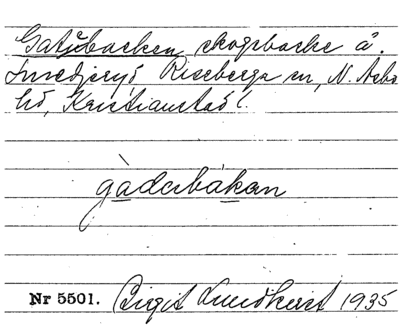 Gatubacken skogsbacke å.
Smedjeryd Riseberga sn, N. Åsbo
hd, Kristianstad l.
gàdabákan
Nr 5501. Birgit Lundkvist 1935